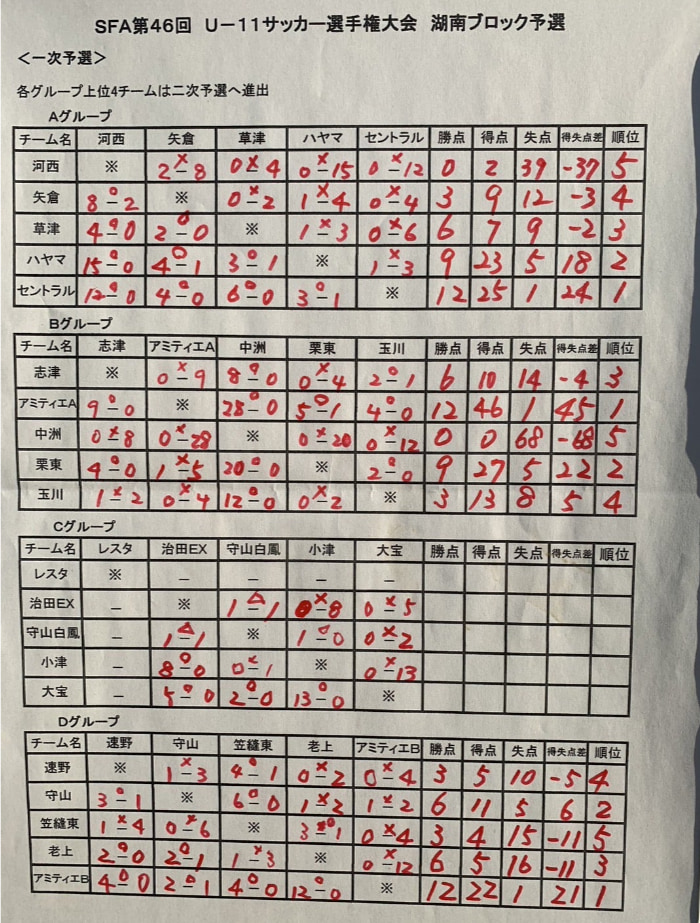 SFA第46回 U－11サッカー選手権大会 湖南ブロック予選
＜一次予選＞
各グループ上位4チームは二次予選へ進出
Aグループ
チーム名 河西 矢倉 草津 ハヤマ セントラル 勝点 得点 失点 得失点差 順位
河西 ※ 2×－8 0×－4 0×－15 0×－12 0 2 39 -37 5
矢倉 8○－2 ※ 0×－2 1×－4 0×－4 3 9 12 -3 4
草津 4○－0 2○－0 ※ 1×－3 0×－6 6 7 9 -2 3
ハヤマ 15○－0 4○－1 3○－1 ※ 1×－3 9 23 5 18 2
セントラル 12○－0 4○－0 6○－0 3○－1 ※ 12 25 1 24 1
Bグループ
チーム名 志津 アミティエA 中洲 栗東 玉川 勝点 得点 失点 得失点差 順位
志津 ※ 0×－9 8○－0 0×－4 2○－1 6 10 14 -4 3
アミティエA 9○－0 ※ 28○－0 5○－1 4○－0 12 46 1 45 1
中洲 0×－8 0×－28 ※ 0×－20 0×－12 0 0 68 -68 5
栗東 4○－0 1×－5 20○－0 ※ 2○－0 9 27 5 22 2
玉川 1×－2 0×－4 12○－0 0×－2 ※ 3 13 8 5 4
Cグループ
チーム名 レスタ 治田EX 守山白鳳 小津 大宝 勝点 得点 失点 得失点差 順位
レスタ ※ － － － －
治田EX － ※ 1△－1 0×－8 0×－5
守山白鳳 － 1△－1 ※ 1○－0 0×－2
小津 － 8○－0 0×－1 ※ 0×－13
大宝 － 5○－0 2○－0 13○－0 ※
Dグループ
チーム名 速野 守山 笠縫東 老上 アミティエB 勝点 得点 失点 得失点差 順位
速野 ※ 1×－3 4○－1 0×－2 0×－4 3 5 10 -5 4
守山 3○－1 ※ 6○－0 1×－2 1×－2 6 11 5 6 2
笠縫東 1×－4 0×－6 ※ 3○－1 0×－4 3 4 15 -11 5
老上 2○－0 2○－1 1×－3 ※ 0×－12 6 5 16 -11 3
アミティエB 4○－0 2○－1 4○－0 12○－0 ※ 12 22 1 21 1